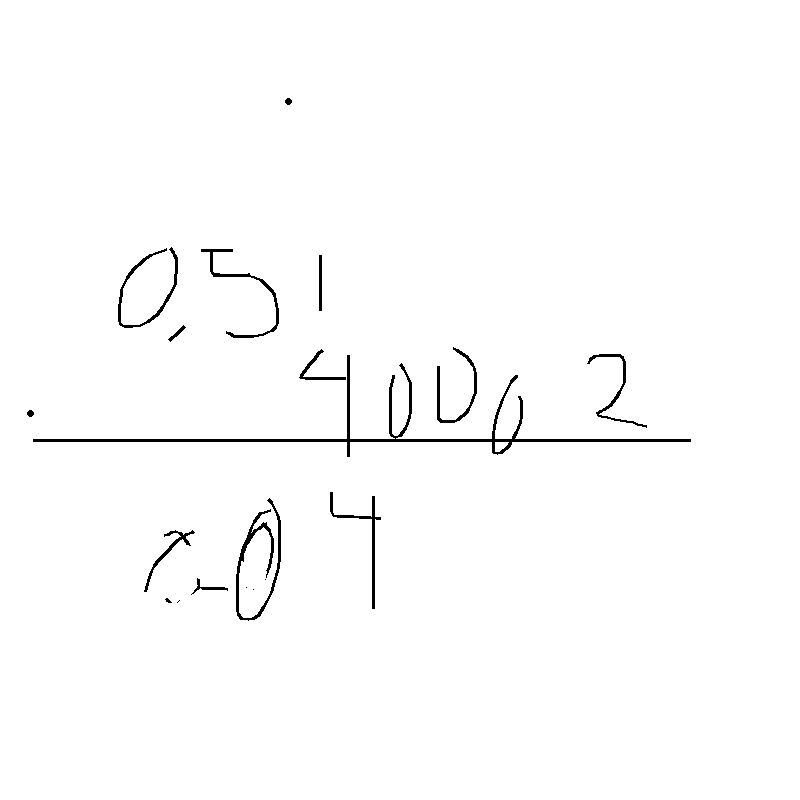 0,51
40002
04